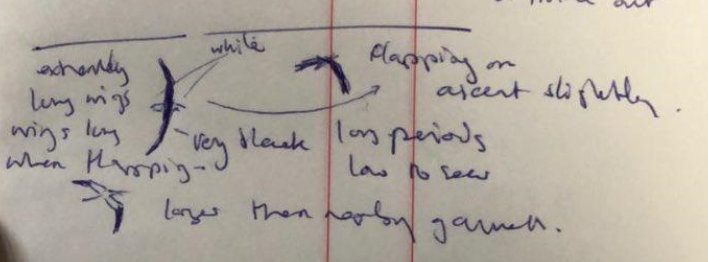 white
extremely
long wings
wings long
when flapping
very black
Flapping on
ascent slightly.
long periods
low to sea
larger than nearby gannet.